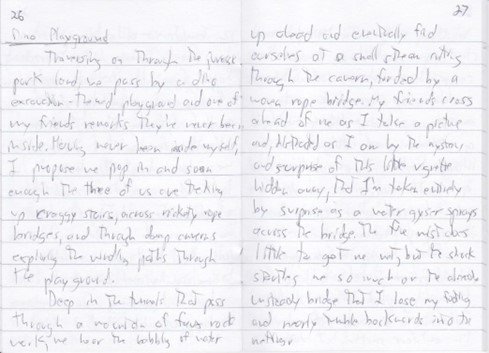 26
Dino Playground
Traversing on through the jurassic
park land we pass by a dino
excavation-themed playground and one of
my friends remarks they've never been
inside. Having never been inside myself,
I propose we pop in and soon
enough the three of us are trekking
up craggy stairs, across rickety rope
bridges, and through damp caverns
exploring the winding paths through
the playground.
Deep in the tunnels that pass
through a mountain of faux rock
work, we hear the bubbling of water
27
up ahead and eventually find
ourselves at a small stream cutting
through the cavern, forded by a
woven rope bridge. My friends cross
ahead of me as I take a picture
and, distracted as I am by the mystery
and surprise of this little vignette
hidden away, that I'm taken entirely
by surprise as a water gyser sprays
across the bridge. The fine mist does
little to get me wet, but the shock
startles me so much on the already
unsteady bridge that I lose my footing
and nearly tumble backwards into the